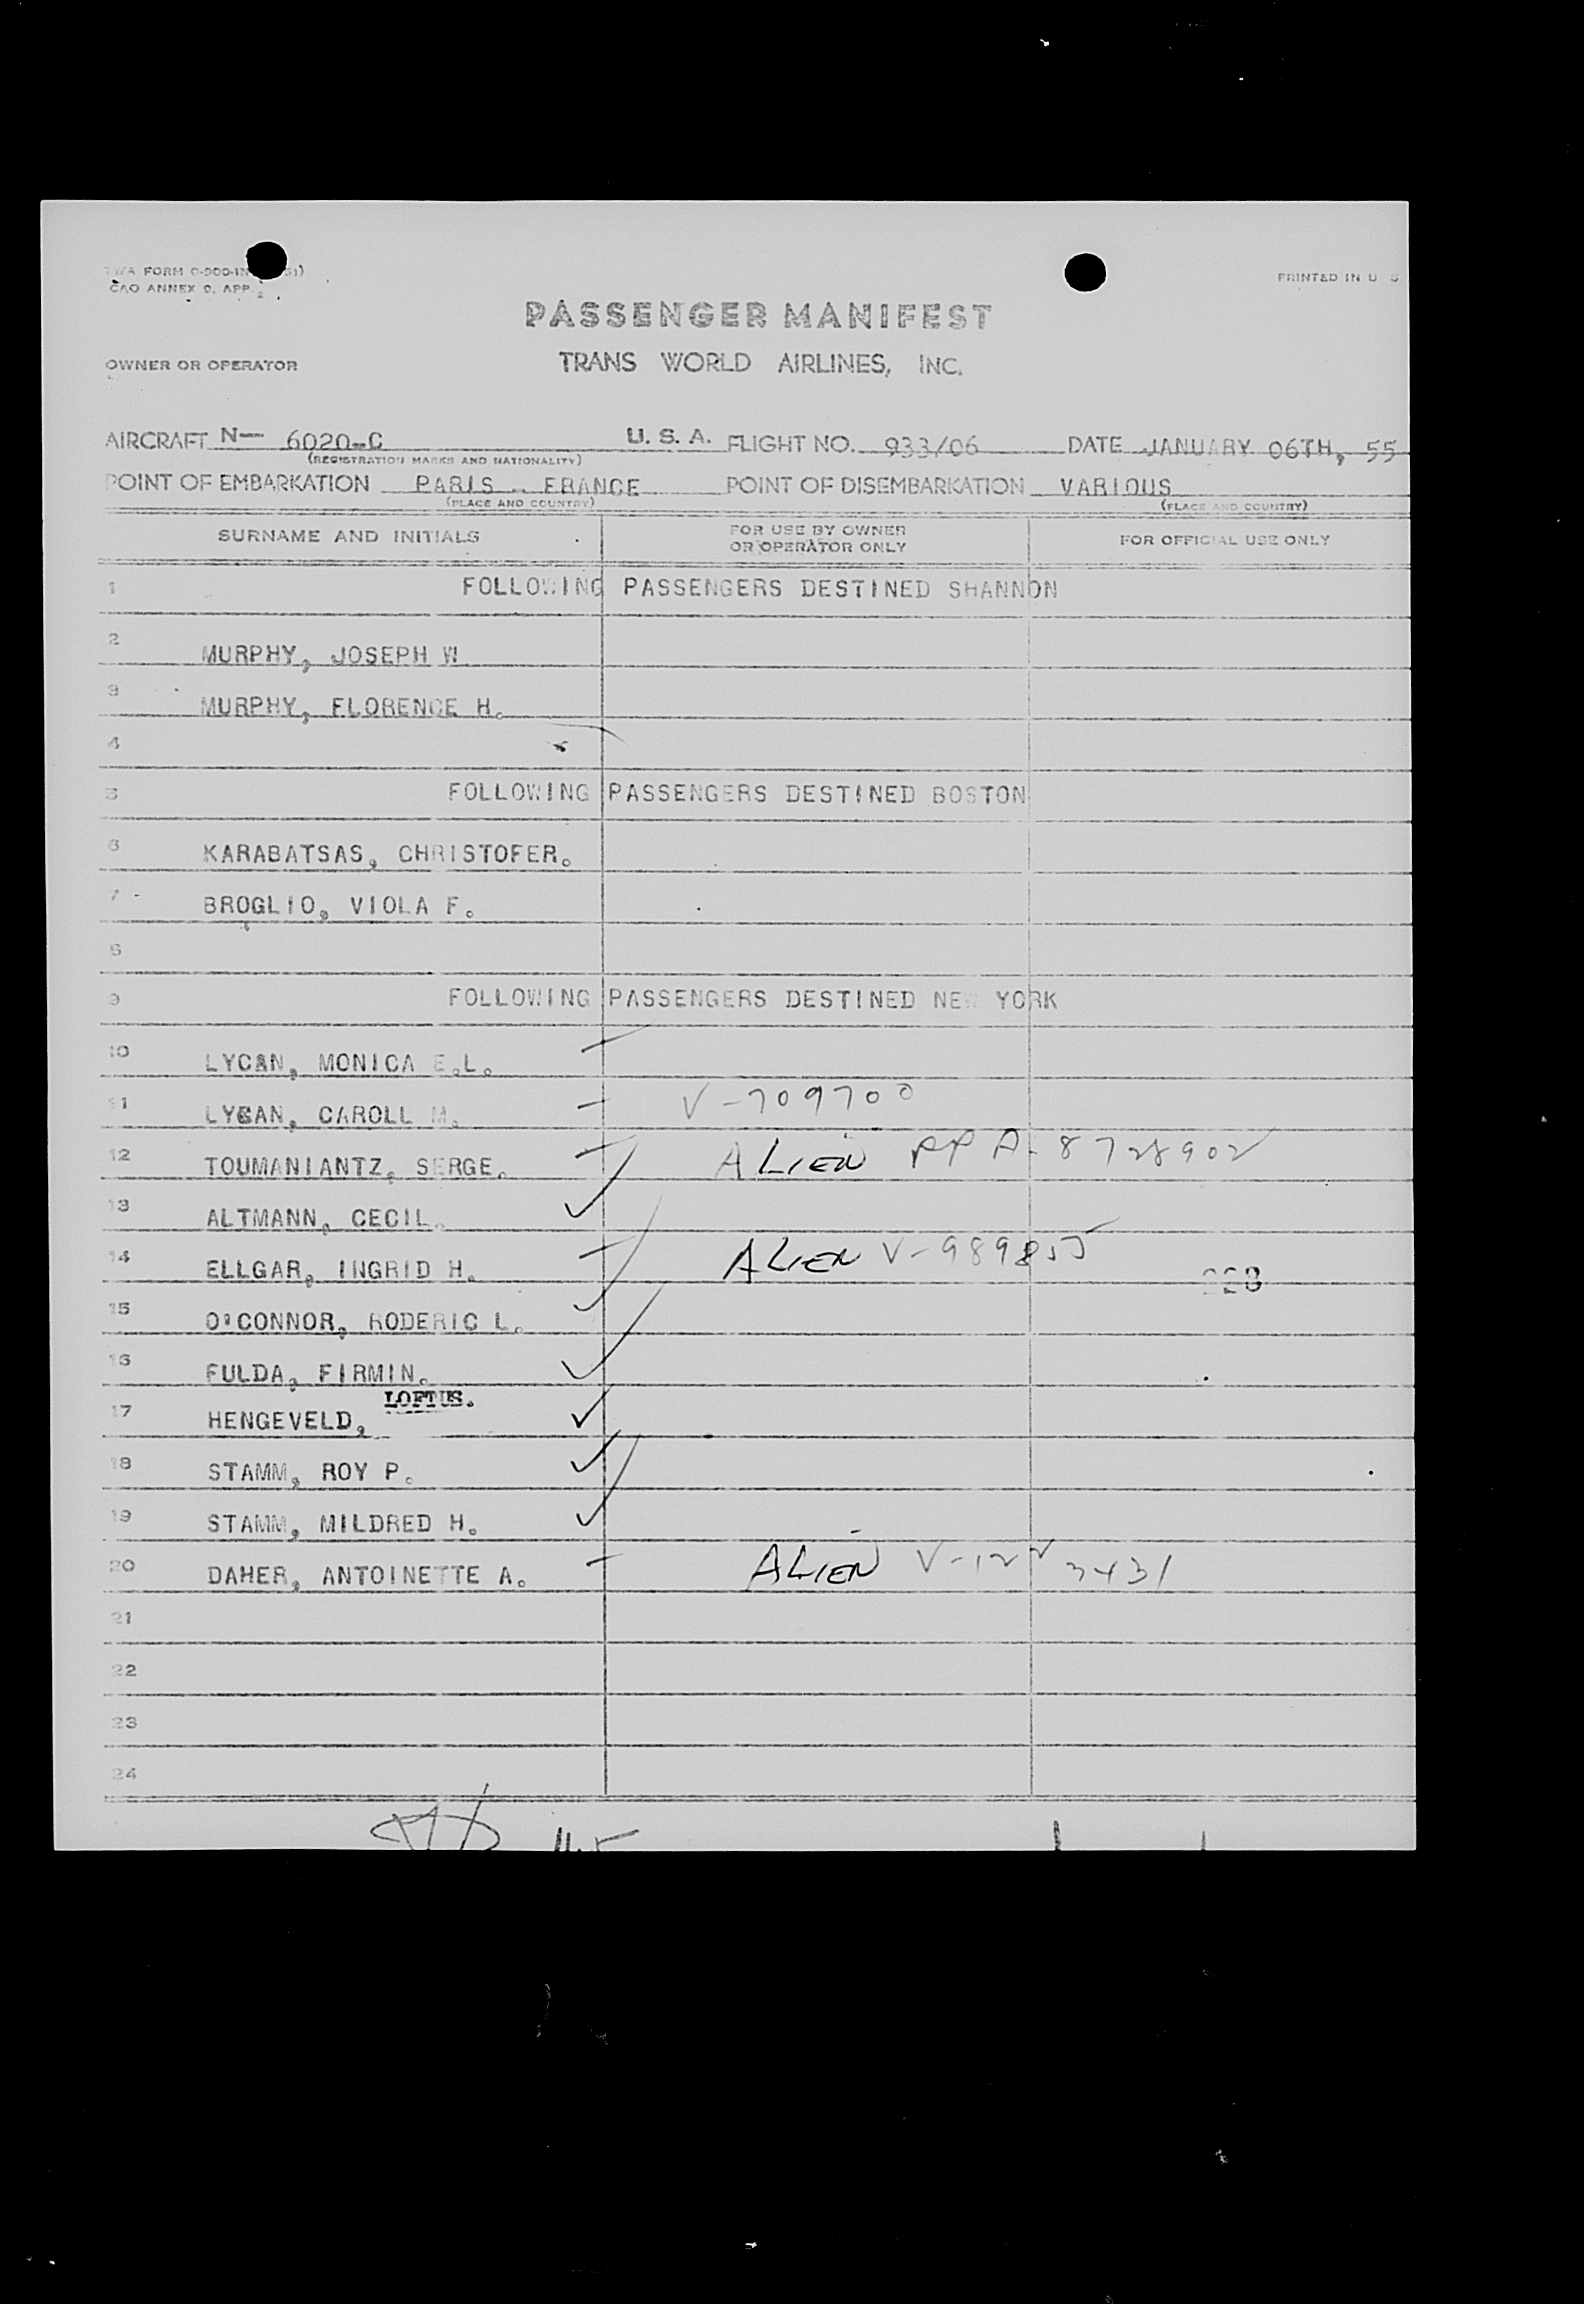 TWA FORM
ICAO ANNEX 9, APP.
PRINTED IN U S
PASSENGER MANIFEST
OWNER OR OPERATOR TRANS WORLD AIRLINES, INC.
AIRCRAFT N— 6020-C U. S. A. FLIGHT NO. 933/06 DATE JANUARY 06TH, 55
(REGISTRATION MARKS AND NATIONALITY)
POINT OF EMBARKATION PARIS - FRANCE POINT OF DISEMBARKATION VARIOUS
(PLACE AND COUNTRY) (PLACE AND COUNTRY)
SURNAME AND INITIALS FOR USE BY OWNER OR OPERATOR ONLY FOR OFFICIAL USE ONLY
1 FOLLOWING PASSENGERS DESTINED SHANNON
2 MURPHY, JOSEPH W
3 MURPHY, FLORENCE H.
4
5 FOLLOWING PASSENGERS DESTINED BOSTON
6 KARABATSAS, CHRISTOFER.
7 BROGLIO, VIOLA F.
8
9 FOLLOWING PASSENGERS DESTINED NEW YORK
10 LYCAN, MONICA E.L.
11 LYCAN, CAROLL M. V-709700
12 TOUMANIANTZ, SERGE. ALIEN PP A-8728902
13 ALTMANN, CECIL.
14 ELLGAR, INGRID H. ALIEN V-989855
15 O'CONNOR, RODERIC L.
16 FULDA, FIRMIN.
17 HENGEVELD, LOFTUS.
18 STAMM, ROY P.
19 STAMM, MILDRED H.
20 DAHER, ANTOINETTE A. ALIEN V-1223431
21
22
23
24